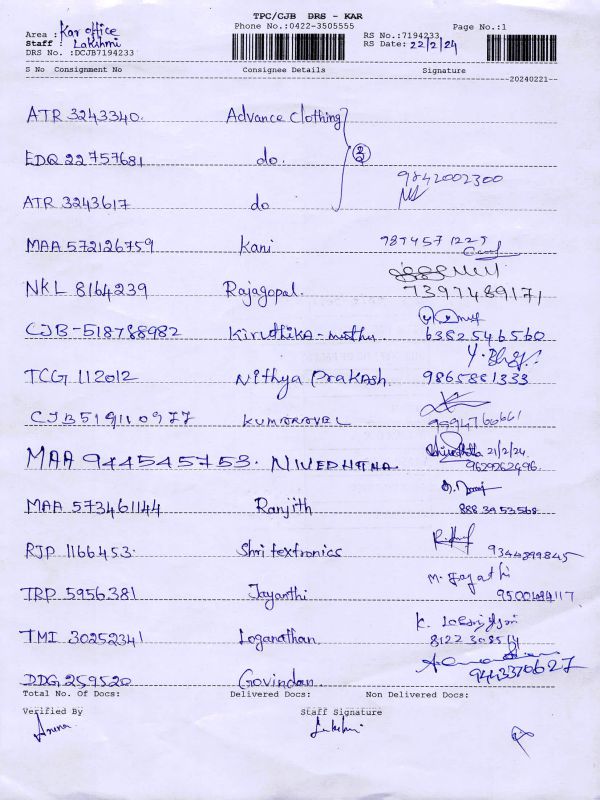 TPC/CJB DRS - KAR
Phone No.:0422-3505555 Page No.:1
Area : Kar office
Staff : Lakshmi
RS No.:7194233
DRS No. :DCJB7194233
RS Date: 22/2/24
S No Consignment No Consignee Details Signature
20240221
ATR 3243340. Advance Clothing
EDQ 22757681 do.
ATR 3243617 do 9842002300
MAA 572126759 Kani
NKL 8164239 Rajagopal. 7397489171
CJB-518788982 Kiruthika-muthu. 6382546560
TCG 112012 Nithya Prakash. 9865881333
CJB519110977 KUMARAVEL
MAA 944545753. NIVEDHITHA. 21/2/24
9629262496.
MAA 573461144 Ranjith 8883953568
RJP 1166453. Shri textronics 9344899845
TRP 5956381 Jayanthi
TMI 30252341 Loganathan.
DDG 259520 Govindan. 9443370627
Total No. Of Docs: Delivered Docs: Non Delivered Docs:
Verified By Staff Signature